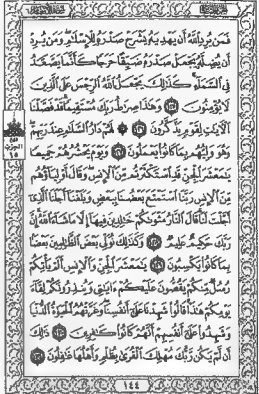 فَمَن يُرِدِ ٱللَّهُ أَن يَهْدِيَهُۥ يَشْرَحْ صَدْرَهُۥ لِلْإِسْلَٰمِ وَمَن يُرِدْ
أَن يُضِلَّهُۥ يَجْعَلْ صَدْرَهُۥ ضَيِّقًا حَرَجًا كَأَنَّمَا يَصَّعَّدُ
فِى ٱلسَّمَآءِ كَذَٰلِكَ يَجْعَلُ ٱللَّهُ ٱلرِّجْسَ عَلَى ٱلَّذِينَ
لَا يُؤْمِنُونَ ١٢٥ وَهَٰذَا صِرَٰطُ رَبِّكَ مُسْتَقِيمًا قَدْ فَصَّلْنَا
ٱلْءَايَٰتِ لِقَوْمٍ يَذَّكَّرُونَ ١٢٦ ۞ لَهُمْ دَارُ ٱلسَّلَٰمِ عِندَ رَبِّهِمْ
وَهُوَ وَلِيُّهُم بِمَا كَانُوا۟ يَعْمَلُونَ ١٢٧ وَيَوْمَ يَحْشُرُهُمْ جَمِيعًا
يَٰمَعْشَرَ ٱلْجِنِّ قَدِ ٱسْتَكْثَرْتُم مِّنَ ٱلْإِنسِ وَقَالَ أَوْلِيَآؤُهُم
مِّنَ ٱلْإِنسِ رَبَّنَا ٱسْتَمْتَعَ بَعْضُنَا بِبَعْضٍ وَبَلَغْنَآ أَجَلَنَا ٱلَّذِىٓ
أَجَّلْتَ لَنَا قَالَ ٱلنَّارُ مَثْوَىٰكُمْ خَٰلِدِينَ فِيهَآ إِلَّا مَا شَآءَ ٱللَّهُ إِنَّ
رَبَّكَ حَكِيمٌ عَلِيمٌ ١٢٨ وَكَذَٰلِكَ نُوَلِّى بَعْضَ ٱلظَّٰلِمِينَ بَعْضًۢا
بِمَا كَانُوا۟ يَكْسِبُونَ ١٢٩ يَٰمَعْشَرَ ٱلْجِنِّ وَٱلْإِنسِ أَلَمْ يَأْتِكُمْ
رُسُلٌ مِّنكُمْ يَقُصُّونَ عَلَيْكُمْ ءَايَٰتِى وَيُنذِرُونَكُمْ لِقَآءَ
يَوْمِكُمْ هَٰذَا قَالُوا۟ شَهِدْنَا عَلَىٰٓ أَنفُسِنَا وَغَرَّتْهُمُ ٱلْحَيَوٰةُ ٱلدُّنْيَا
وَشَهِدُوا۟ عَلَىٰٓ أَنفُسِهِمْ أَنَّهُمْ كَانُوا۟ كَٰفِرِينَ ١٣٠ ذَٰلِكَ
أَن لَّمْ يَكُن رَّبُّكَ مُهْلِكَ ٱلْقُرَىٰ بِظُلْمٍ وَأَهْلُهَا غَٰفِلُونَ ١٣١
الحزب
١٥
١٤٤